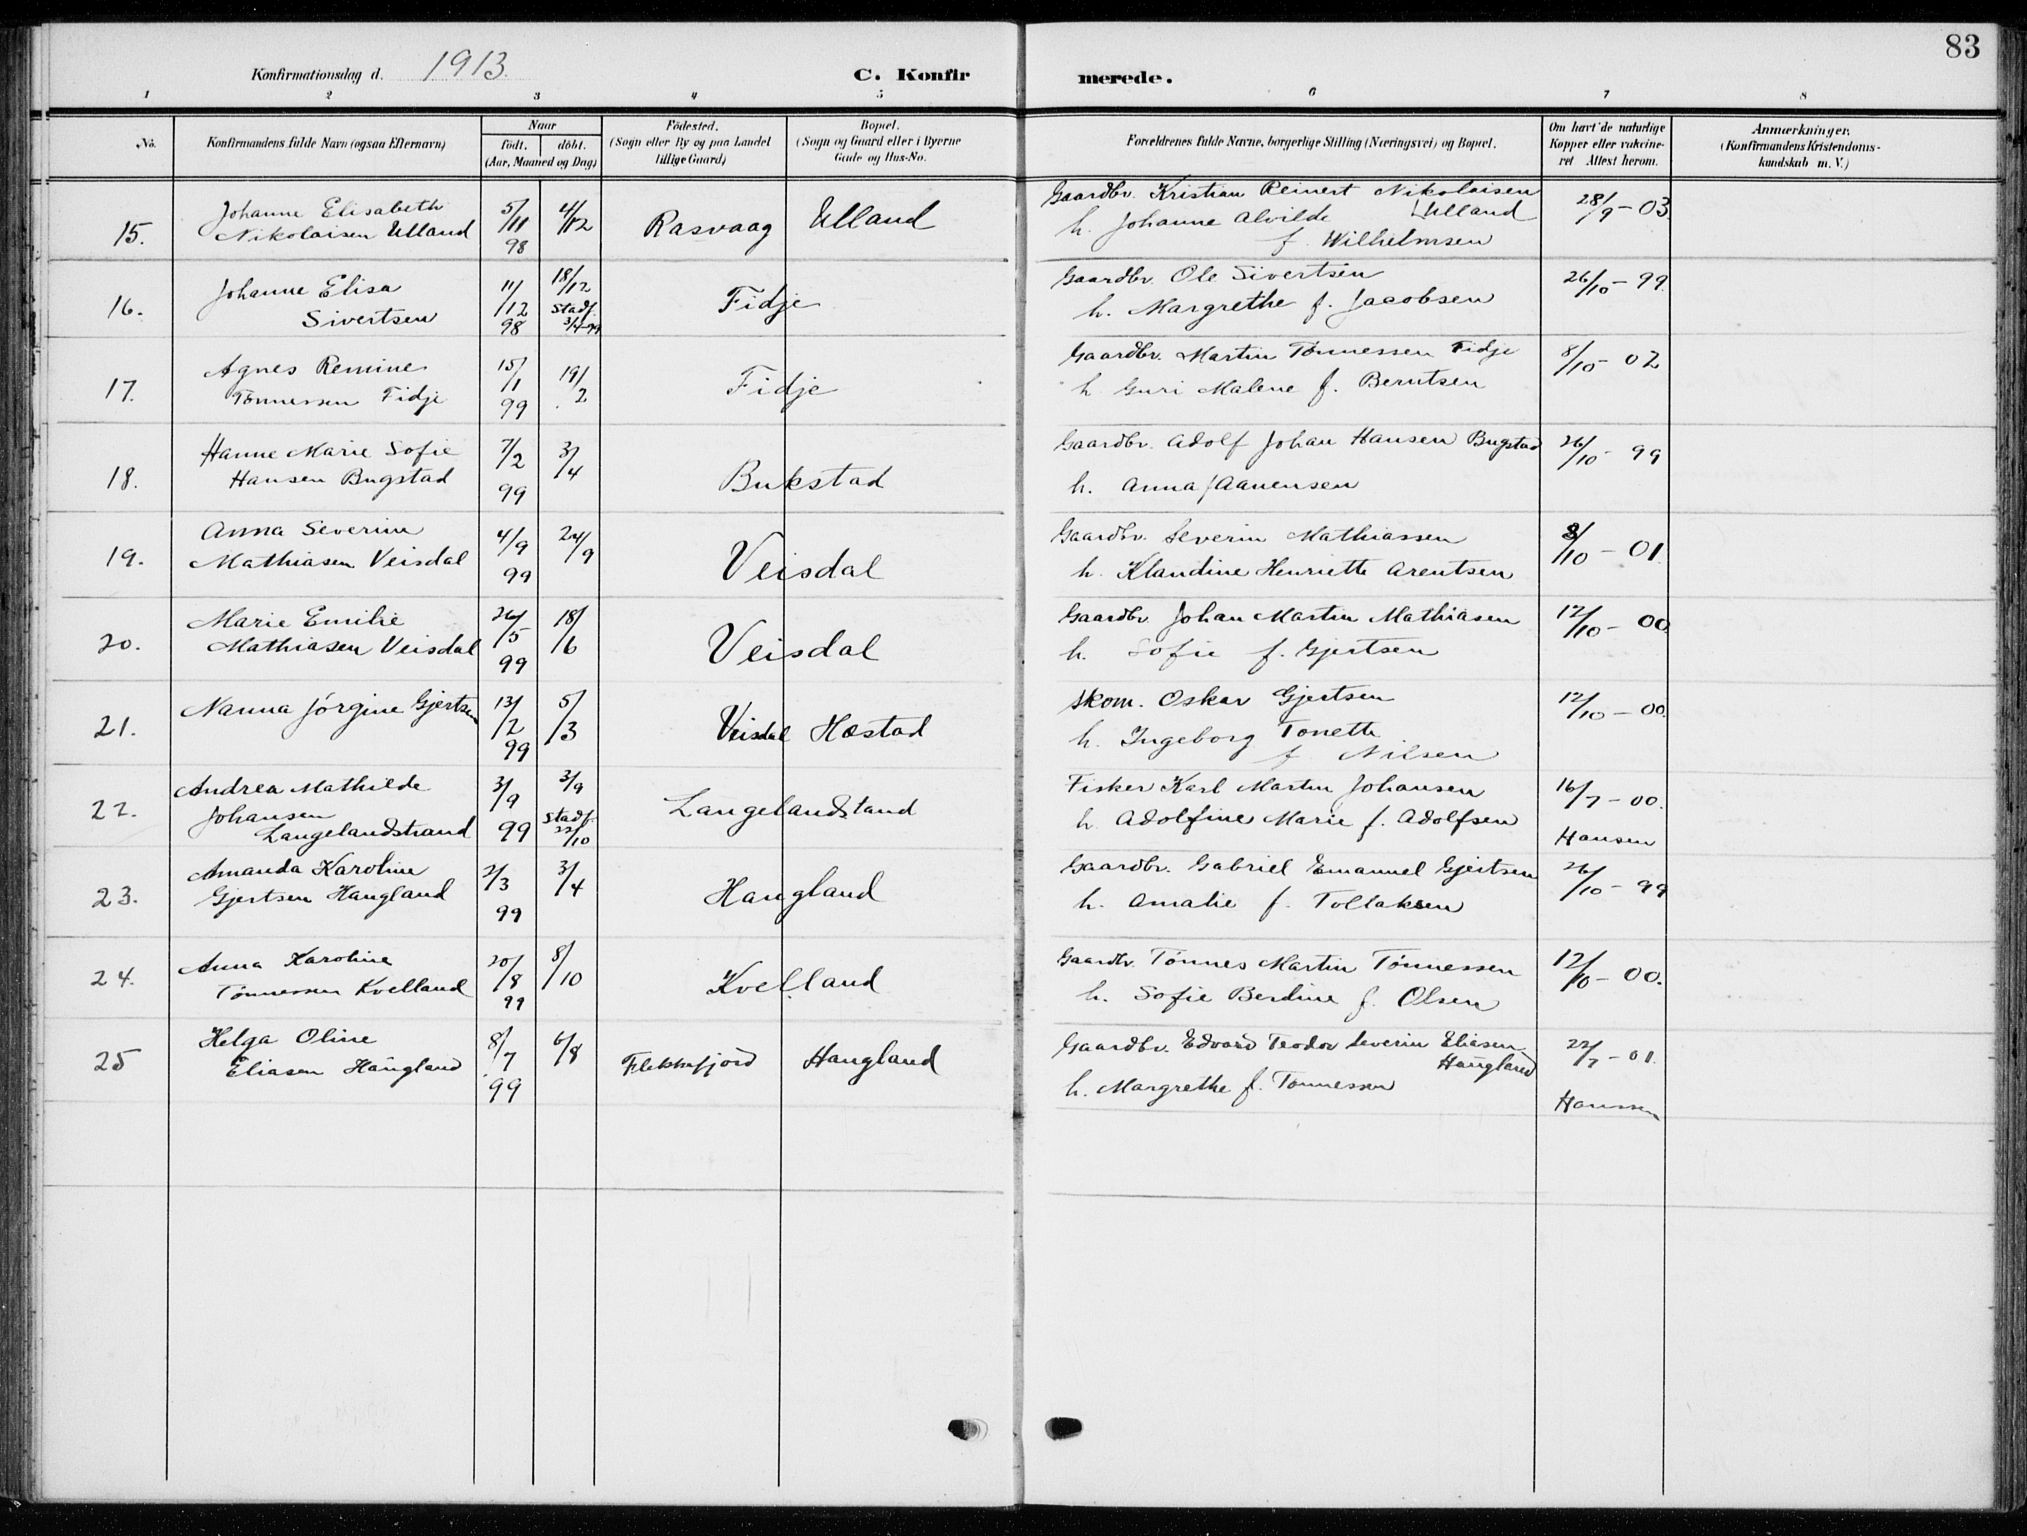 83
Konfirmationsdag d. 1913.
C. Konfirmerede.
1 2 3 4 5 6 7 8
No.
Konfirmandens fulde Navn (ogsaa Efternavn)
Naar
født. døbt.
(Aar, Maaned og Dag)
Fødested.
(Sogn eller By og paa Landet tillige Gaard)
Bopæl.
(Sogn og Gaard eller i Byerne Gade og Hus-No.
Forældrenes fulde Navne, borgerlige Stilling (Næringsvei) og Bopæl.
Om havt de naturlige Kopper eller vakcineret Attest herom.
Anmærkninger.
(Konfirmandens Kristendomskundskab m. V.)
15. Johanne Elisabeth Nikolaisen Ulland 5/11 98 4/12 Rasvaag Ulland
Gaardbr. Kristian Reinert Nikolaisen Ulland
h. Johanne Alvilde f. Wilhelmsen
28/9 - 03
16. Johanne Elisa Sivertsen 11/12 98 18/12 Stadf. 3/4-99 Fidje
Gaardbr. Ole Sivertsen
h. Margrethe f. Jacobsen
26/10 - 99
17. Agnes Remine Tønnessen Fidje 15/1 99 19/2 Fidje
Gaardbr. Martin Tønnessen Fidje
h. Guri Malene f. Berntsen
8/10 - 02
18. Hanne Marie Sofie Hansen Bugstad 7/2 99 3/4 Bukstad
Gaardbr. Adolf Johan Hansen Bugstad
h. Anna f Aanensen
26/10 - 99
19. Anna Severine Mathiasen Veisdal 4/9 99 24/9 Veisdal
Gaardbr. Severin Mathiassen
h. Klandine Henriette Arentsen
8/10 - 01
20. Marie Emilie Mathiasen Veisdal 26/5 99 18/6 Veisdal
Gaardbr. Johan Martin Mathiasen
h. Sofie f. Gjertsen
12/10 - 00
21. Nanna Jørgine Gjertsen 13/2 99 5/3 Veisdal Hæstad
Skom. Oskar Gjertsen
h. Ingeborg Tonette f Nilsen
12/10 - 00.
22. Andrea Mathilde Johansen Langelandstrand 3/9 99 3/9 Stadf. 22/10 Langelandstand
Fisker Karl Martin Johansen
h. Adolfine Marie f. Adolfsen
16/7 - 00.
Hansen
23. Amanda Karoline Gjertsen Haugland 2/3 99 3/4 Haugland
Gaardbr. Gabriel Emanuel Gjertsen
h. Amalie f. Tollaksen
26/10 - 99
24. Anna Karoline Tønnessen Kvelland 20/8 99 8/10 Kvelland
Gaardbr. Tønnes Martin Tønnessen
h. Sofie Berdine f. Olsen
12/10 - 00.
25 Helga Oline Eliasen Haugland 8/7 99 6/8 Flekkefjord Haugland
Gaardbr. Edvard Teodor Severin Eliasen Haugland
h. Margrethe f. Tønnessen
22/7 - 01.
Hanssen